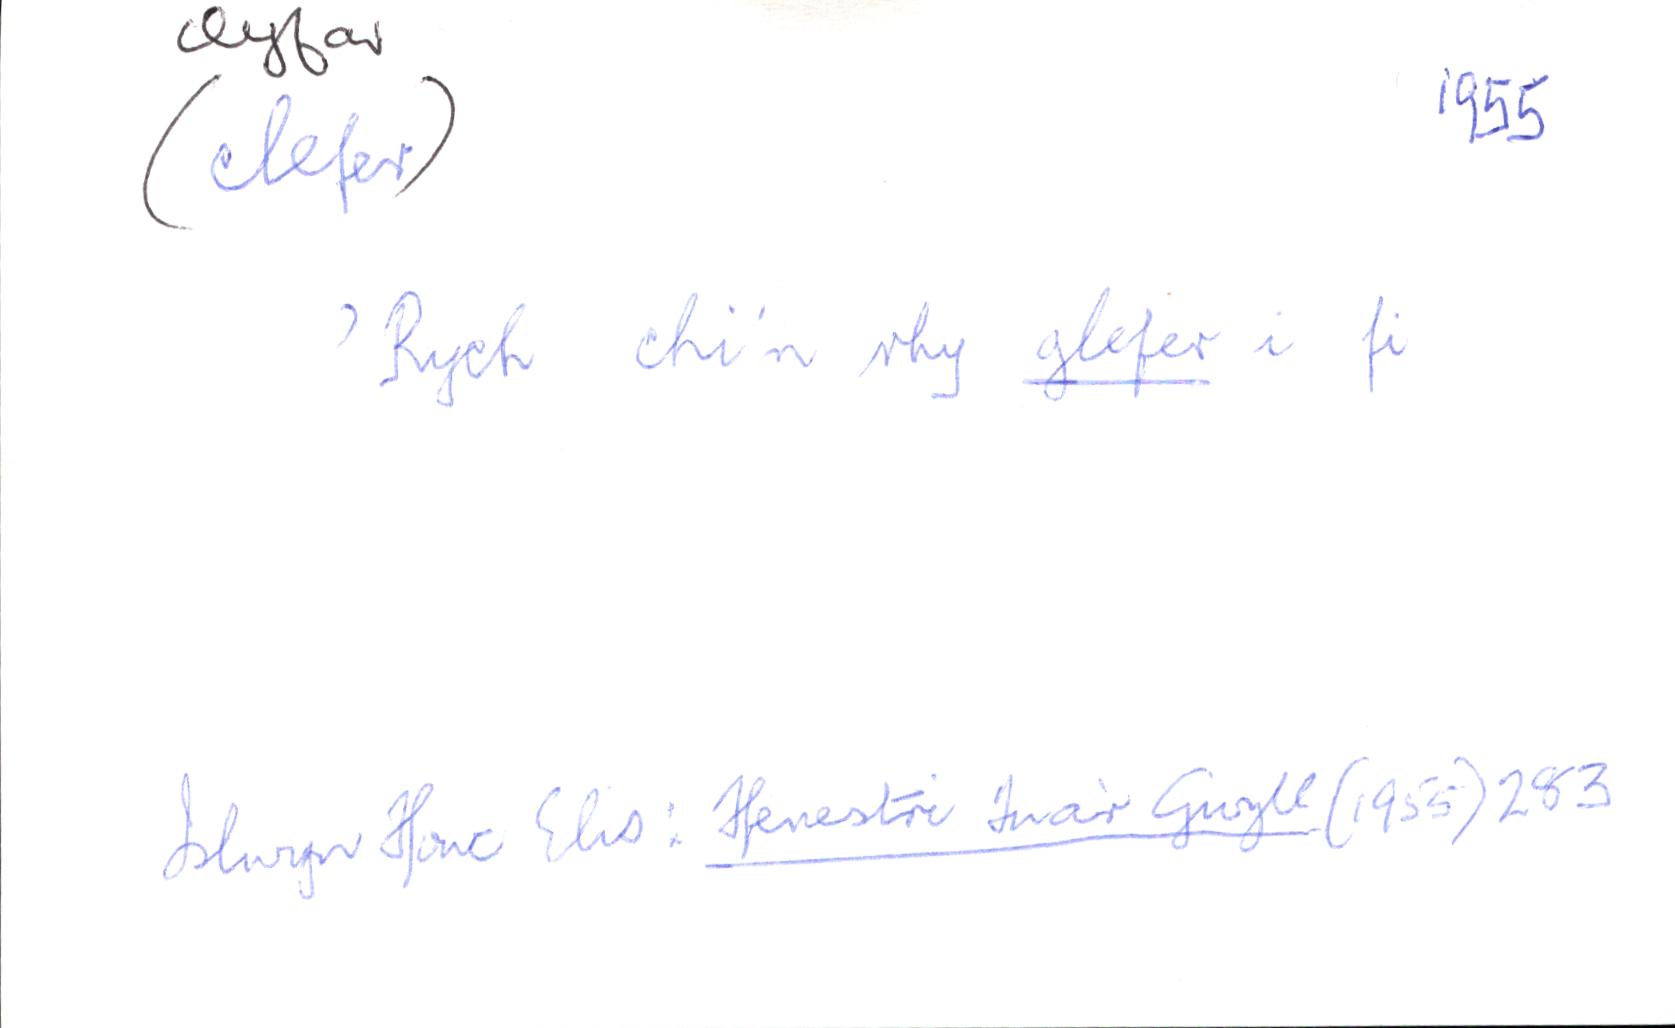 clyfar
(clefer)
1955
'Rych chi'n rhy glefer i fi
Islwyn Ffowc Elis: Ffenestri Tua'r Gwyll (1955) 283